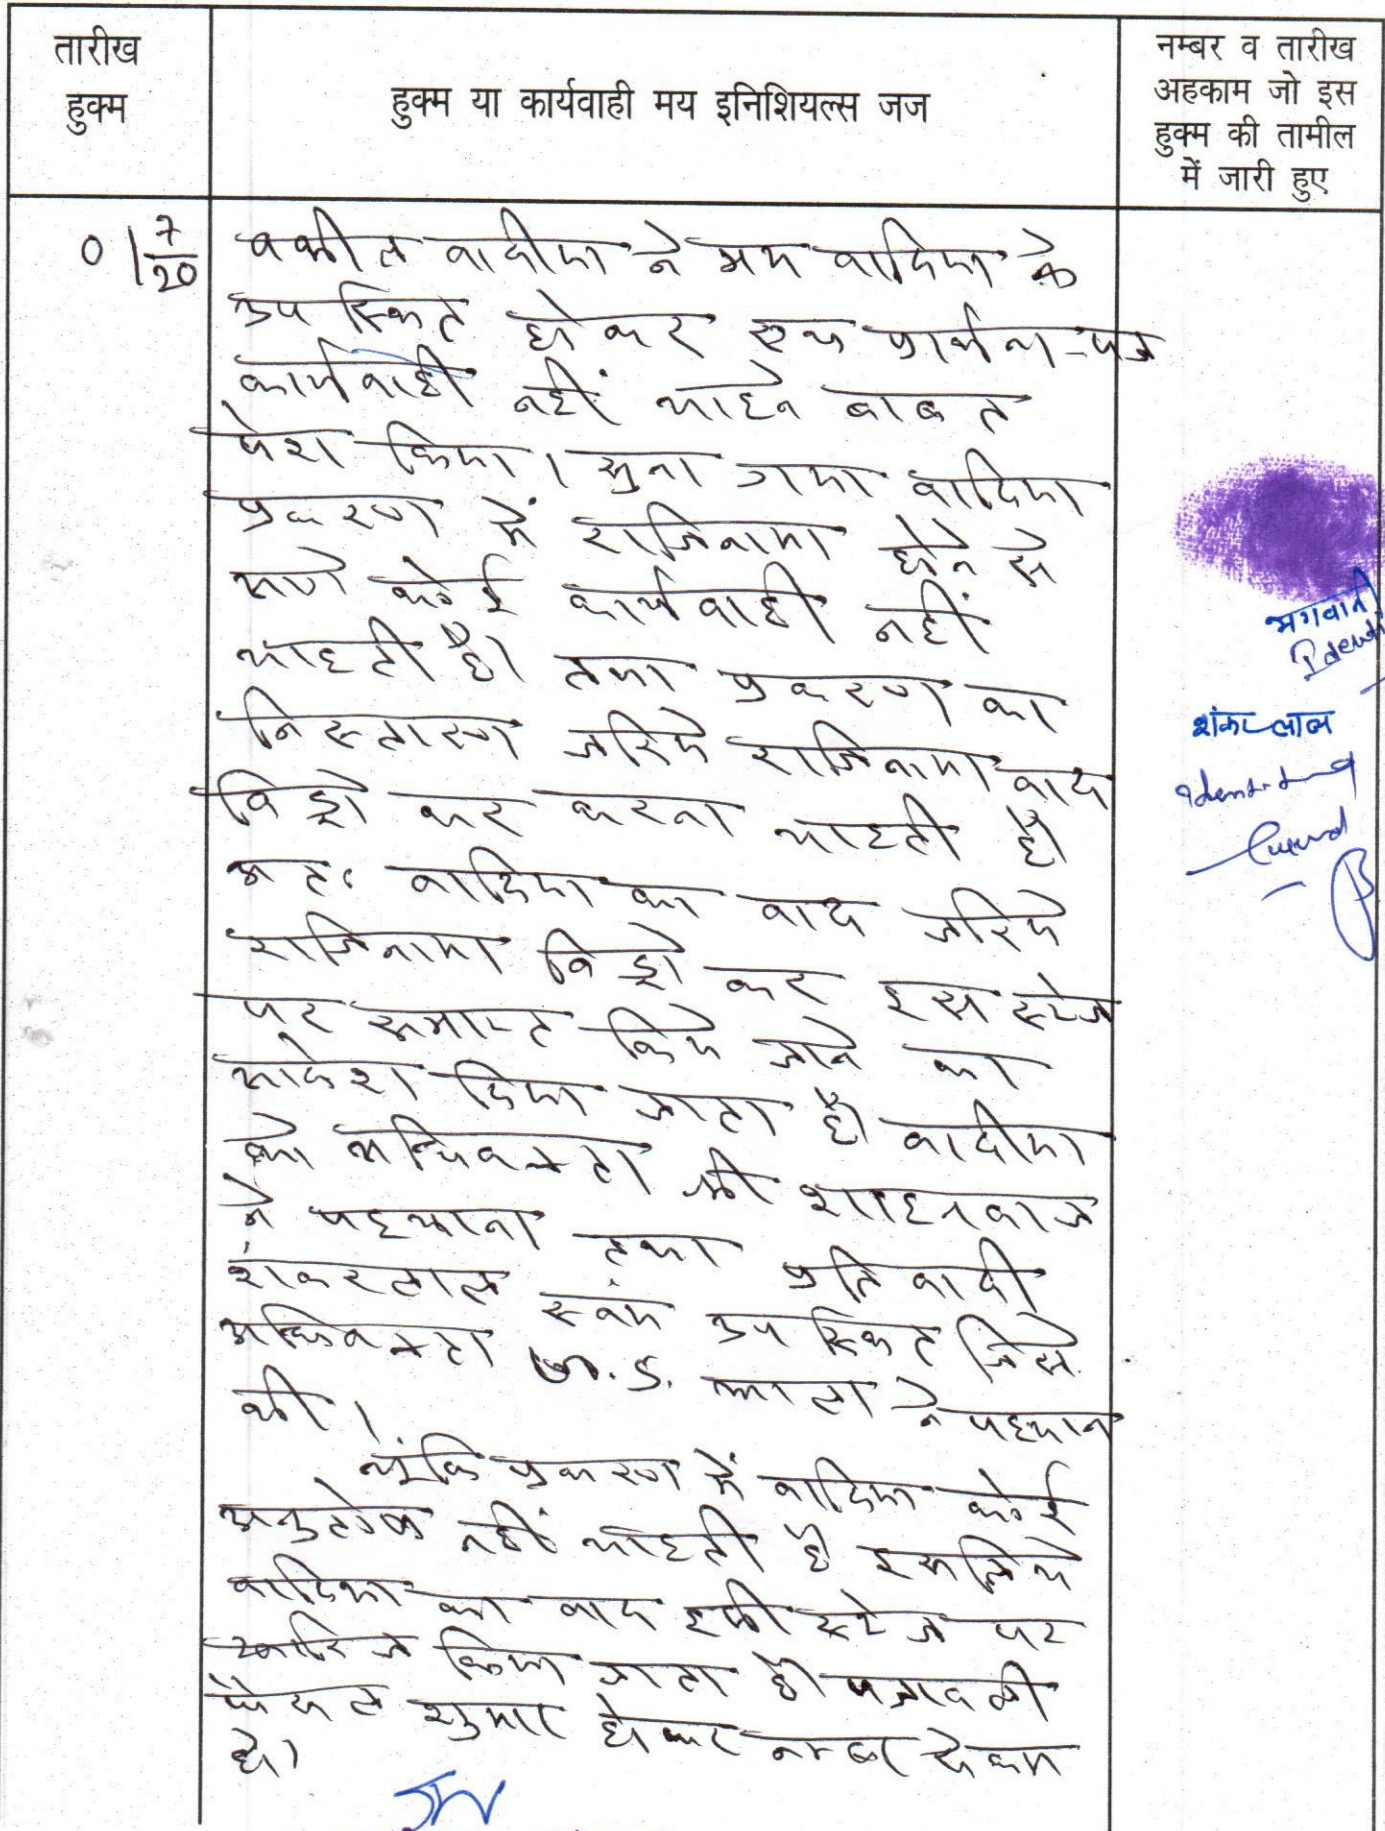 तारीख
हुक्म
हुक्म या कार्यवाही मय इनिशियल्स जज
नम्बर व तारीख
अहकाम जो इस
हुक्म की तामील
में जारी हुए
01 7/20
वकील वादीया ने मय वादिया के
उपस्थित होकर एक प्रार्थना-पत्र
कार्यवाही नहीं चाहने बाबत
पेश किया। सुना गया वादिया
प्रकरण में राजिनामा होने से
आगे कोई कार्यवाही नहीं
चाहती है। तथा प्रकरण का
निस्तारण जरिये राजिनामा वाद
विड्रो कर करना चाहती है।
अतः वादिया का वाद जरिये
राजिनामा विड्रो कर इस स्टेज
पर समाप्त किये जाने का
आदेश दिया जाता है। वादीया
को अधिवक्ता श्री शाहनवाज
ने पहचाना तथा प्रतिवादी
शंकरलाल स्वंय उपस्थित जिसे
अधिवक्ता ने पहचान
की।
चूंकि प्रकरण में वादिया कोई
अनुतोष नहीं चाहती है इसलिये
वादिया का वाद इसी स्टेज पर
खारिज किया जाता है। पत्रावली
फैसल शुमार होकर नम्बर से कम
हो।
भगवानी
Identi
शंकर लाल